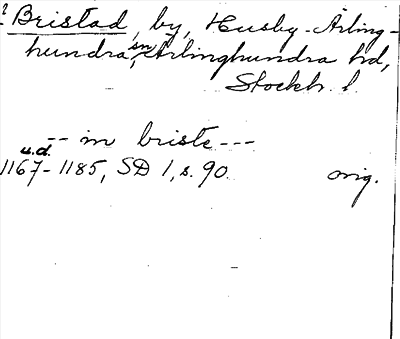 ? Bristad, by, Husby-Ärling-
hundra sn, Ärlinghundra hd,
Stockh. l
-- in briste ---
u.d.
1167-1185, SD 1, s. 90. orig.